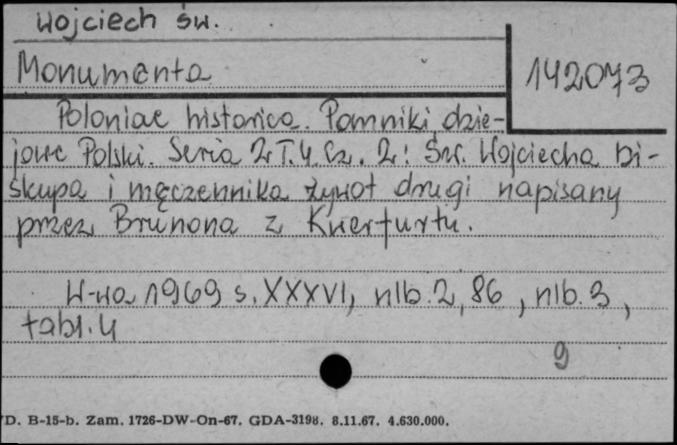 Wojciech św.
Monumenta
142073
Poloniae historica. Pomniki dzie-
jowe Polski. Seria 2 T. 4 Cz. 2: Św. Wojciecha bi-
skupa i męczennika żywot drugi napisany
przez Brunona z Kwerfurtu.
W-wa 1969 s. XXXVI, nlb. 2, 86, nlb. 3,
tabl. 4
9
D. B-15-b. Zam. 1726-DW-On-67. GDA-3198. 8.11.67. 4.630.000.